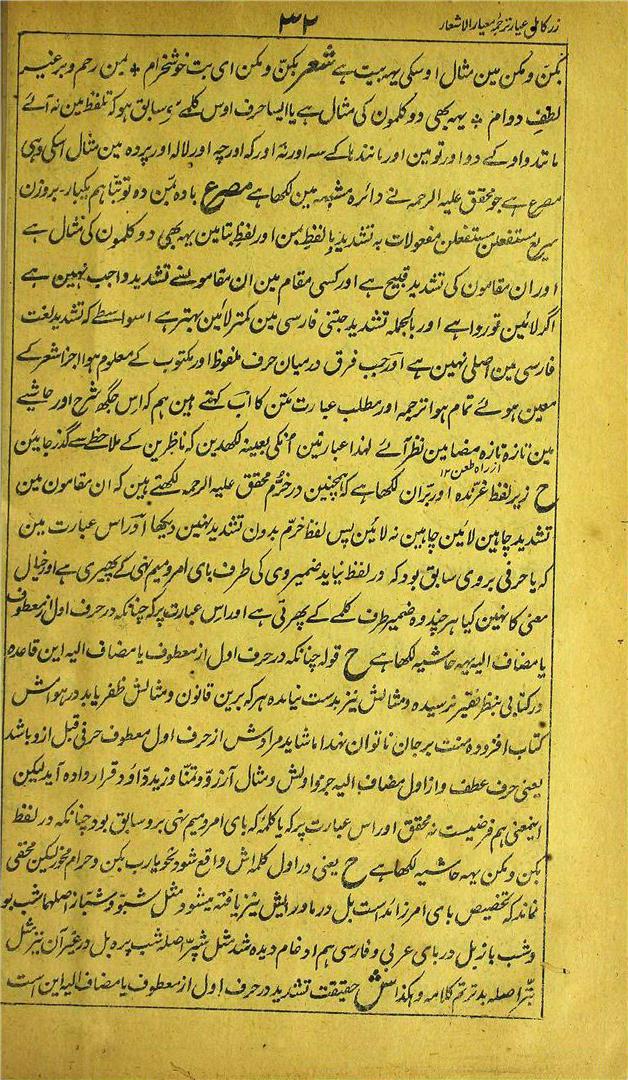 زر کامل عیار ترجمہ معیار الاشعار
۳۲
بکن و مکن مین مثال اوسکی یہہ بیت ہے شعر بکن و مکن ای بت خوشخرام * بمن رحم و بر غیر
لطف دوام * یہہ بھی دو کلمون کی مثال ہے یا ایسا حرف اوس کلمے پر سابق ہو کہ تلفظ مین نہ آئے
مانند واو کے دو اور تو مین اور مانند ہا کے سہ اور نہ اور کہ اور چہ اور لالہ اور پردہ مین مثال اسکی وہی
مصرع ہے جو محقق علیہ الرحمہ نے دائرہ مشتبہہ مین لکھا ہے مصرع بادہ بمن دہ تو بتا ہم یکبار۔ بروزن
سریع مستفعلن مستفعلن مفعولات بہ تشدید با لفظ بمن اور لفظ بتا مین یہہ بھی دو کلمون کی مثال ہے
اور ان مقامون کی تشدید قبیح ہے اور کسی مقام مین ان مقامون سے تشدید واجب نہین ہے
اگر لائین تو روا ہے اور بالجملہ تشدید جتنی فارسی مین کمتر لائین بہتر ہے اسواسطے کہ تشدید لغت
فارسی مین اصلی نہین ہے اور جب فرق درمیان حرف ملفوظ اور مکتوب کے معلوم ہوا اجزا شعر کے
معین ہوئے تمام ہوا ترجمہ اور مطلب عبارت متن کا اب کہتے ہین ہم کہ اس جگہہ شرح اور حاشیے
مین تازہ تازہ مضامین نظر آئے لہذا عبارتین اُنکی بعینہ لکھدین کہ ناظرین کے ملاحظے سے گذر جائین
از راہ طعن ۱۲
ح زیر لفظ غرّندہ اور برّان لکھا ہے کہ ہمچنین در خرّم محقق علیہ الرحمہ لکھتے ہین کہ ان مقامون مین
تشدید چاہین لائین چاہین نہ لائین پس لفظ خرّم بدون تشدید نہین دیکھا اور اس عبارت مین
کہ یا حرفی بروی سابق بود کہ در لفظ نیاید ضمیر وی کی طرف بای امر و میم نہی کے پھیری ہے اور خیال
معنی کا نہین کیا ہر چند وہ ضمیر طرف کلمے کے پھرتی ہے اور اس عبارت پر کہ چنانکہ در حرف اول از معطوف
یا مضاف الیہ یہہ حاشیہ لکھا ہے ح قولہ چنانکہ در حرف اول از معطوف یا مضاف الیہ این قاعدہ
در کتابی بنظر فقیر نرسیدہ و مثالش نیز بدست نیامدہ ہر کہ برین قانون و مثالش ظفر یابد در ہوامش
کتاب افزودہ منت بر جان ناتوان نہد اما شاید مرادش از حرف اول معطوف حرفی قبل ازو باشد
یعنی حرف عطف و از اول مضاف الیہ جزو اولش و مثال آرزوّ و تمنّا و زیدّ داوٗد قرار دادہ آید لیکن
اینمعنی ہم فرضیست نہ محقق اور اس عبارت پر کہ یا کلمۂ کہ بای امر و میم نہی برو سابق بود چنانکہ در لفظ
بکن و مکن یہہ حاشیہ لکھا ہے ح یعنی در اول کلمہ اش واقع شود نحو یارب بکن و حرام مخور لیکن مخفی
نماند کہ تخصیص بای امر زائد است بل در ماورایش نیز یافتہ میشود مثل شبّو و شبّاز اصلہما شب بو
و شب باز بل در بای عربی و فارسی ہم ادغام دیدہ شد مثل شپّرہ اصلہ شب پرہ بل در غیر آن نیز مثل
بتّر اصلہ بدتر تم کلامہ و ہکذا ش حقیقت تشدید در حرف اول از معطوف یا مضاف الیہ این است